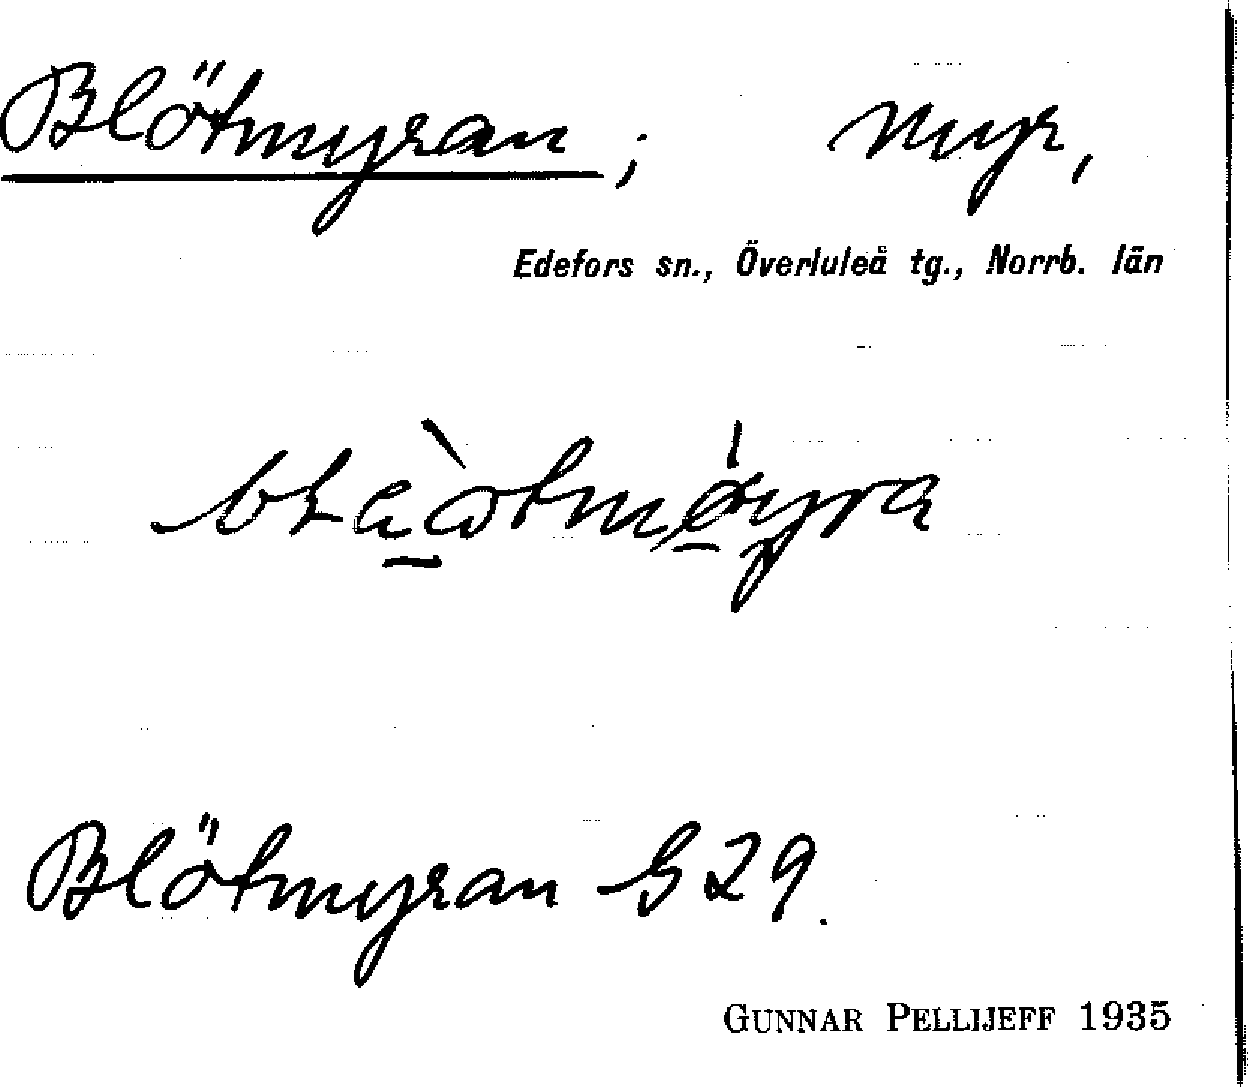 Blötmyran; myr,
Edefors sn., Överluleå tg., Norrb. län
Blötmyran G29.
GUNNAR PELLIJEFF 1935